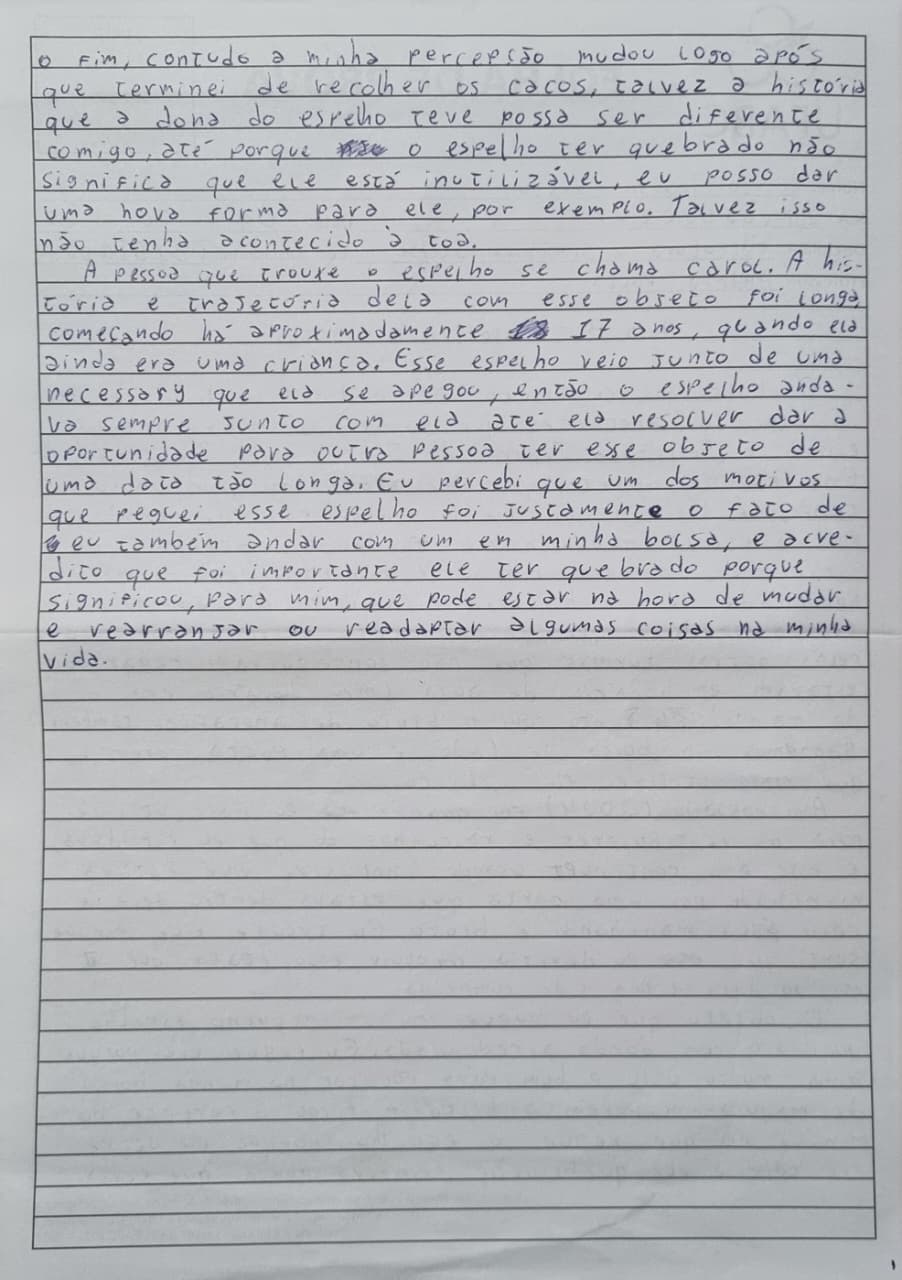 o fim, contudo a minha percepção mudou logo após
que terminei de recolher os cacos, talvez a história
que a dona do espelho teve possa ser diferente
comigo, até porque o espelho ter quebrado não
significa que ele está inutilizável, eu posso dar
uma nova forma para ele, por exemplo. Talvez isso
não tenha acontecido à toa.
A pessoa que trouxe o espelho se chama Carol. A his-
tória e trajetória dela com esse objeto foi longa,
começando há aproximadamente 17 anos, quando ela
ainda era uma criança. Esse espelho veio junto de uma
necessary que ela se apegou, então o espelho anda-
va sempre junto com ela até ela resolver dar a
oportunidade para outra pessoa ter esse objeto de
uma data tão longa. Eu percebi que um dos motivos
que peguei esse espelho foi justamente o fato de
eu também andar com um em minha bolsa, e acre-
dito que foi importante ele ter quebrado porque
significou, para mim, que pode estar na hora de mudar
e rearranjar ou readaptar algumas coisas na minha
vida.